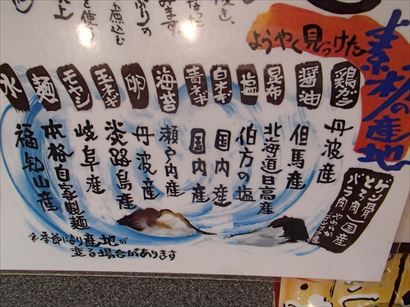 ようやく見つけた
素材の産地
鶏ガラ 丹波産
醤油 但馬産
昆布 北海道日高産
塩 伯方の塩
白ネギ 国内産
青ネギ 国内産
海苔 瀬戸内産
卵 丹波産
玉ネギ 淡路島産
モヤシ 岐阜産
麺 本格自家製麺
水 福知山産
ゲン骨
とん肉
バラ肉
国産
※季節により産地が
変る場合があります